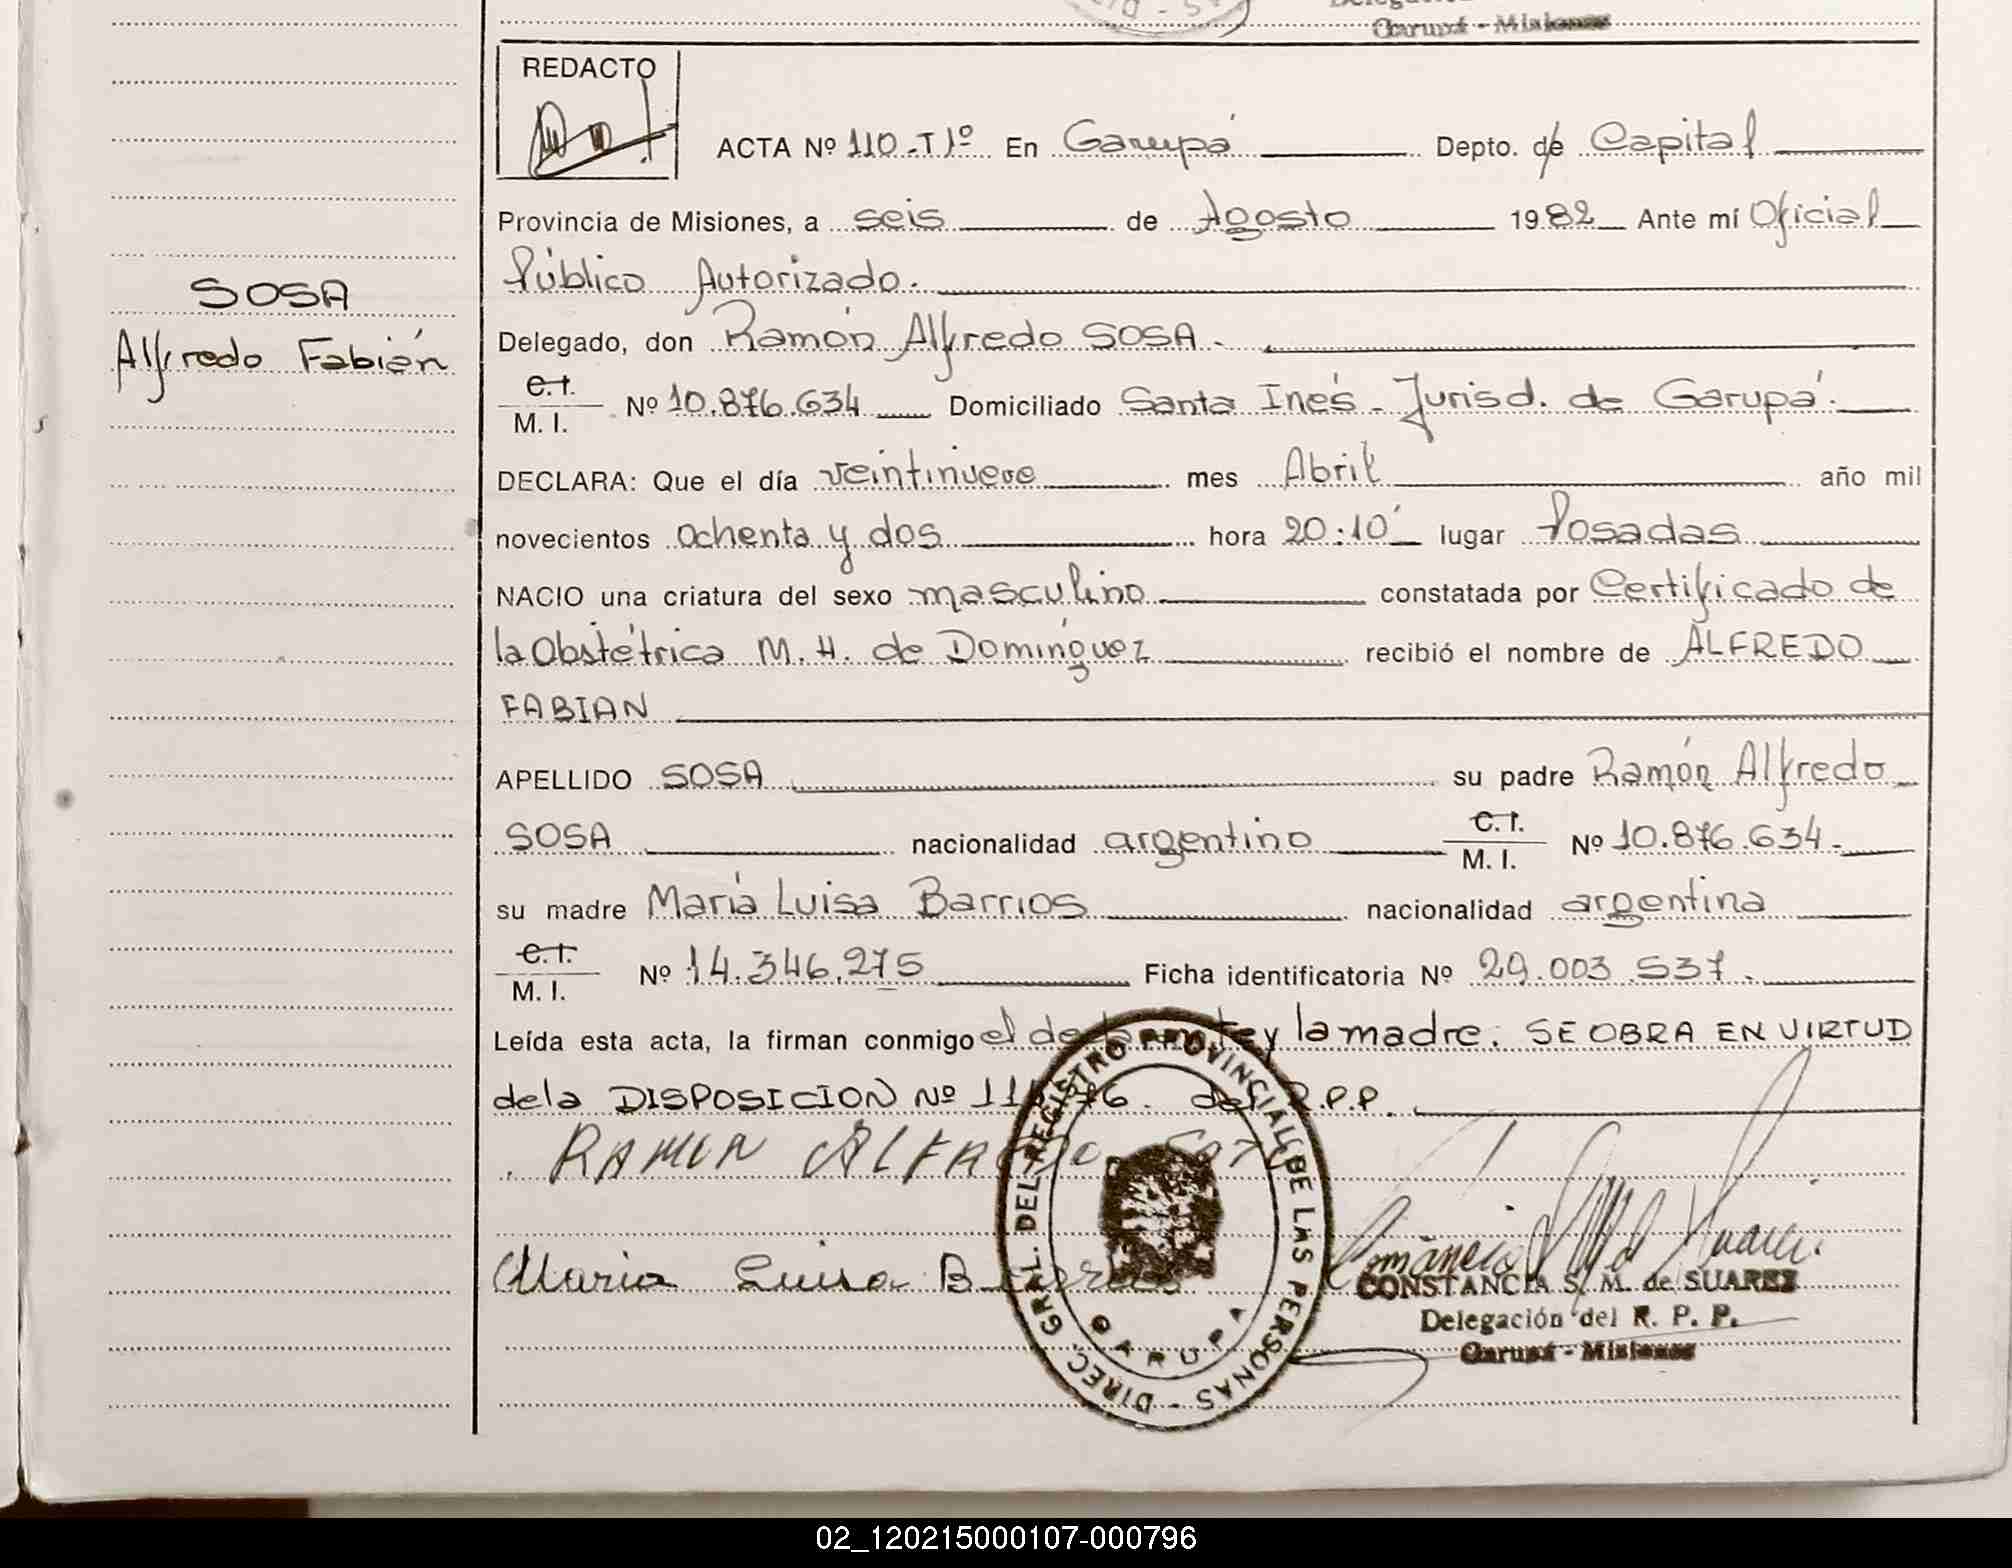 Garupá - Misiones
REDACTO
ACTA Nº 110-T1º En Garupá Depto. de Capital
Provincia de Misiones, a seis de Agosto 1982 Ante mí Oficial
Público Autorizado.
SOSA
Alfredo Fabián
Delegado, don Ramón Alfredo SOSA.
C.I.
M. I. Nº 10.876.634 Domiciliado Santa Inés - Jurisd. de Garupá.
DECLARA: Que el día veintinueve mes Abril año mil
novecientos ochenta y dos hora 20:10' lugar Posadas
NACIO una criatura del sexo masculino constatada por Certificado de
la Obstétrica M. H. de Domínguez recibió el nombre de ALFREDO
FABIAN
APELLIDO SOSA su padre Ramón Alfredo
SOSA nacionalidad argentino C.I. M. I. Nº 10.876.634.-
su madre María Luisa Barrios nacionalidad argentina
C.I.
M. I. Nº 14.346.275 Ficha identificatoria Nº 29.003.537.
Leída esta acta, la firman conmigo el declarante y la madre. SE OBRA EN VIRTUD
de la DISPOSICION Nº del R.P.P.
RAMON ALFREDO
Maria Luisa Barrios
DIREC. GRAL. DEL REGISTRO PROVINCIAL DE LAS PERSONAS -
GARUPA
CONSTANCIA S. M. de SUAREZ
Delegación del R. P. P.
Garupá - Misiones
02_120215000107-000796